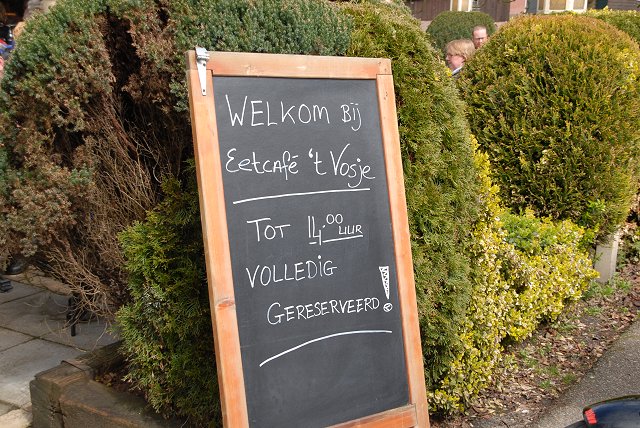 WELKOM BIJ
EETCAFÉ 't VOSJE
TOT 14.00 UUR
VOLLEDIG
GERESERVEERD!